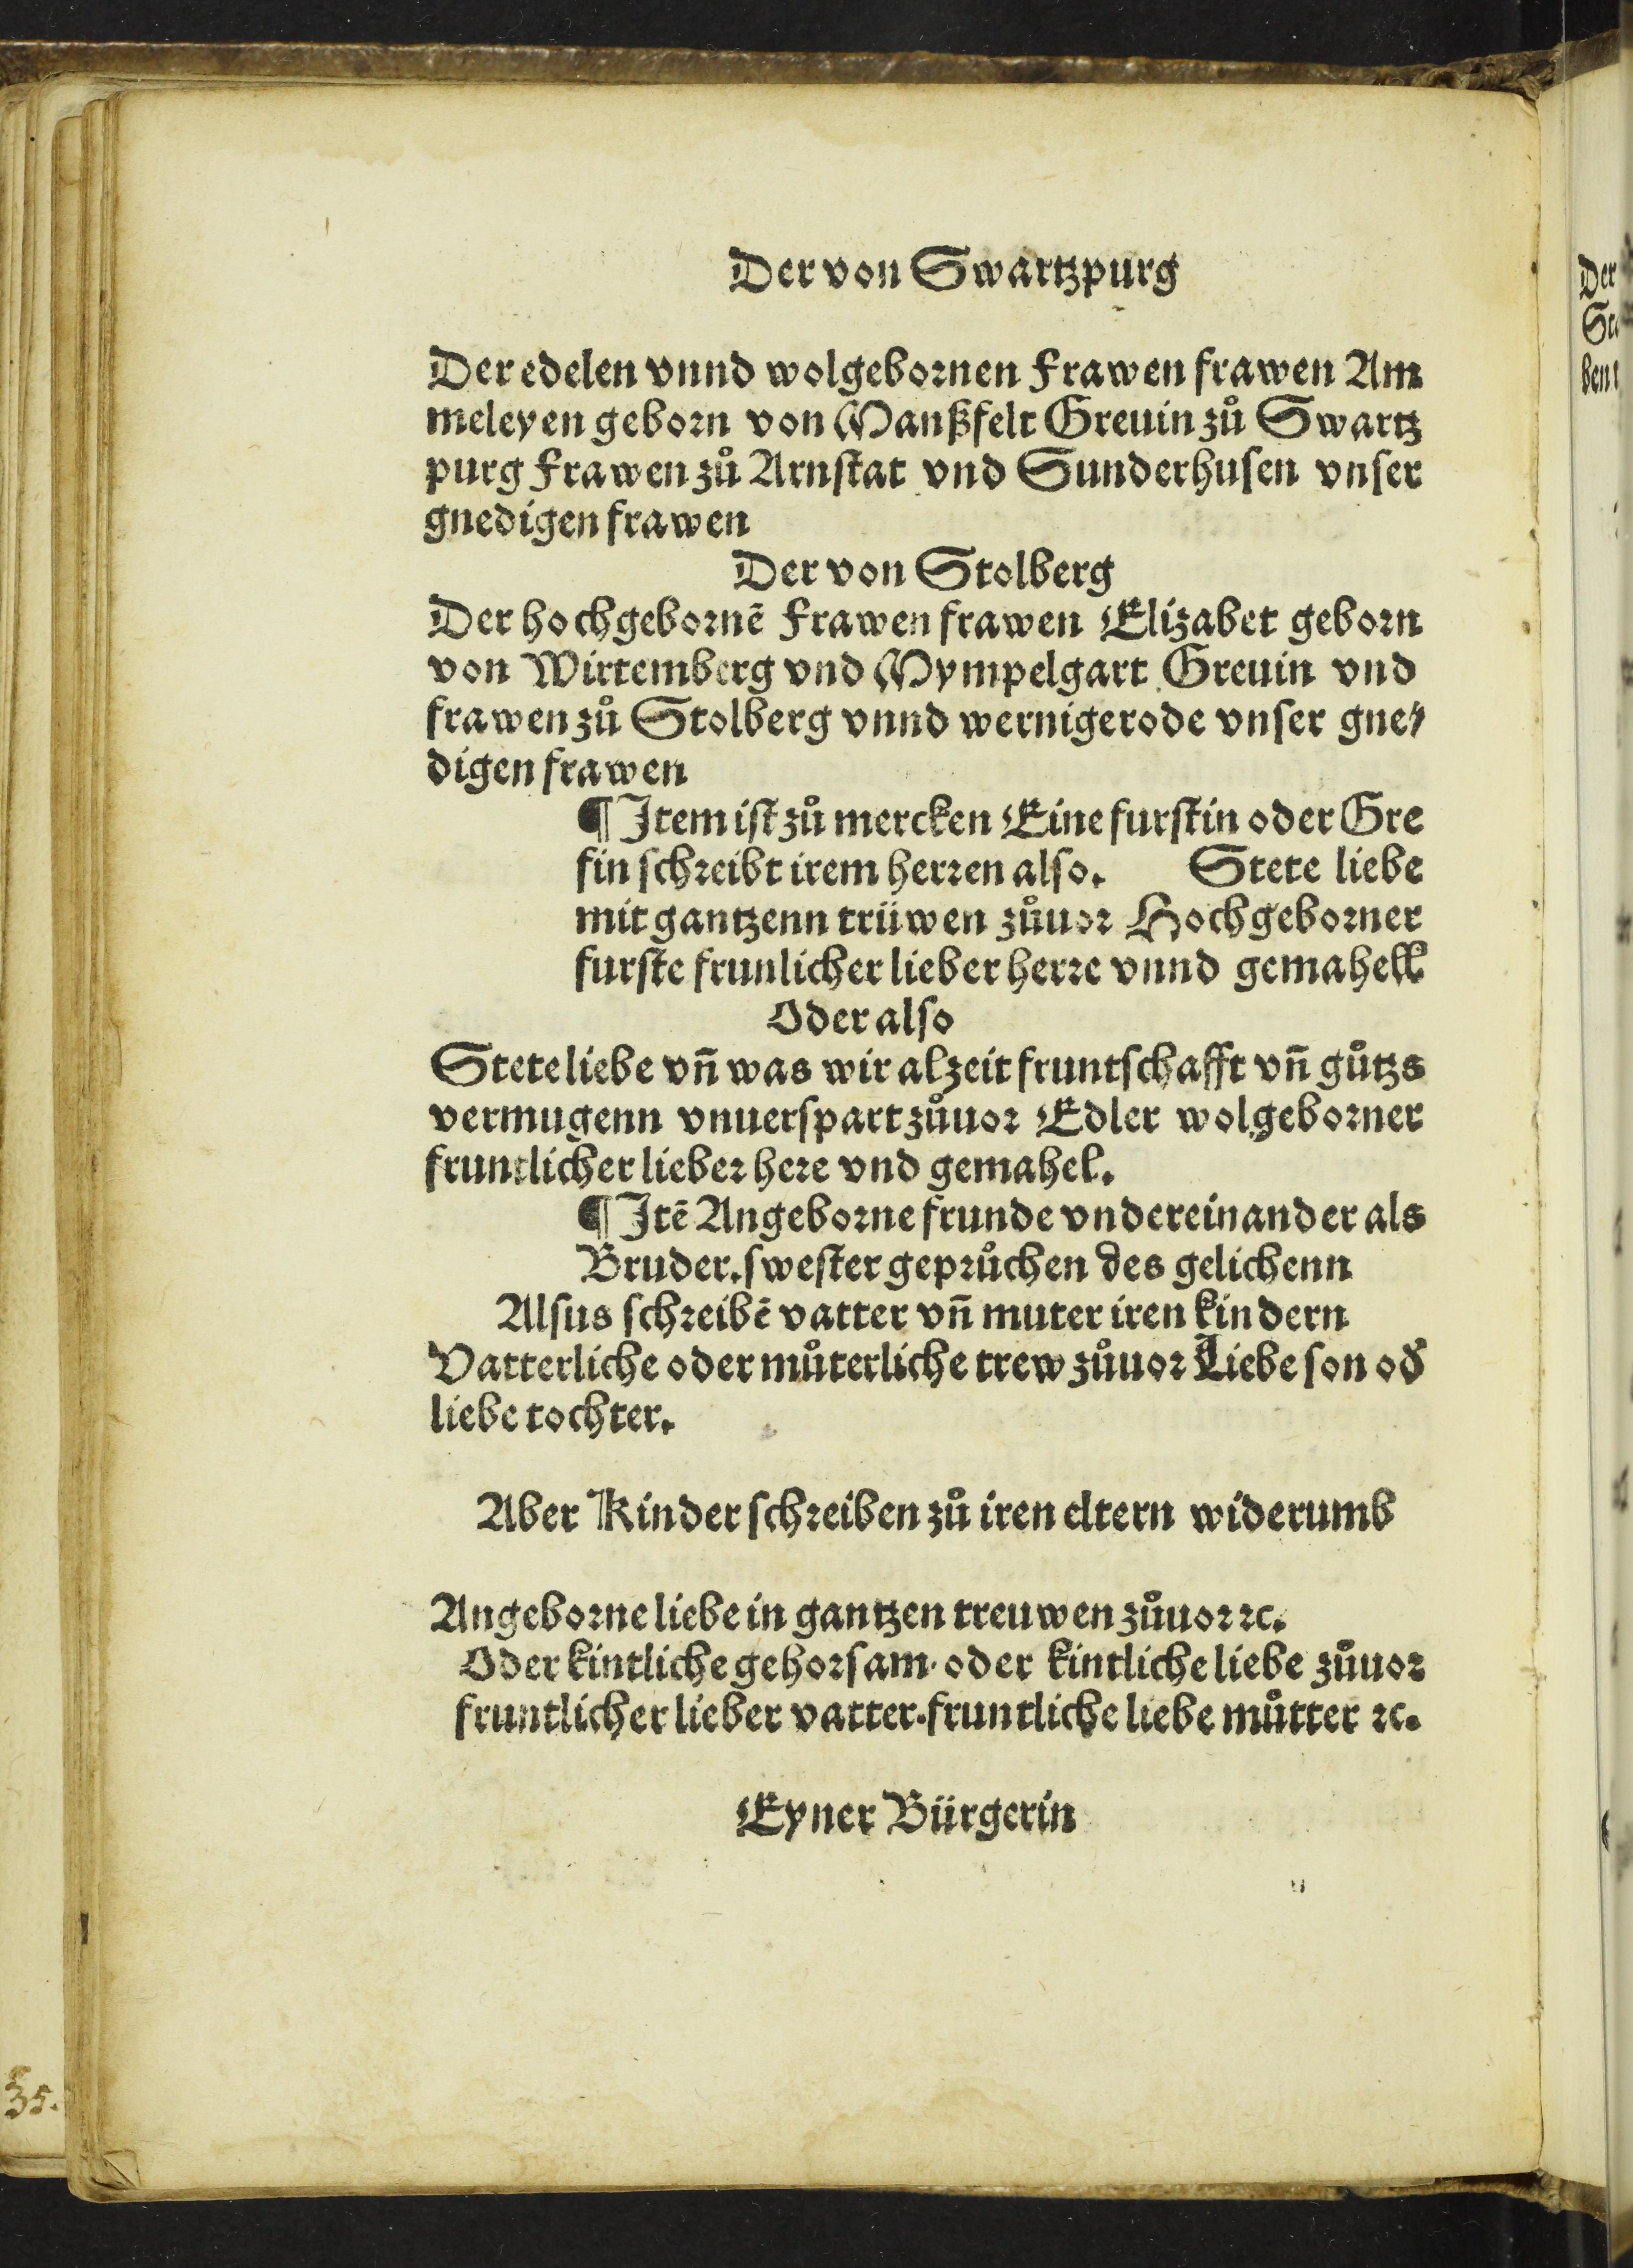 Der von Swartzpurg
Der edelen vnnd wolgebornen Frawen frawen Am
meleyen geborn von Manßfelt Greuin zů Swartz
purg Frawen zů Arnſtat vnd Sunderhuſen vnſer
gnedigen frawen
Der von Stolberg
Der hochgebornē Frawen frawen Elizabet geborn
von Wirtemberg vnd Mympelgart Greuin vnd
frawen zů Stolberg vnnd wernigerode vnſer gne⸗
digen frawen
¶ Item iſt zů mercken Eine furſtin oder Gre
fin ſchreibt irem herren alſo. Stete liebe
mit gantzenn trüwen zůuor Hochgeborner
furſte frunlicher lieber herre vnnd gemahell
Oder alſo
Stete liebe vn̄ was wir alzeit fruntſchafft vn̄ gůtzs
vermugenn vnuerſpart zůuor Edler wolgeborner
fruntlicher lieber here vnd gemahel.
¶ Itē Angeborne frunde vndereinander als
Bruder. ſweſter geprůchen des gelichenn
Alſus ſchreibē vatter vn̄ muter iren kindern
Vatterliche oder můterliche trew zůuor Liebe ſon od̛
liebe tochter.
Aber Kinder ſchreiben zů iren eltern widerumb
Angeborne liebe in gantzen treuwen zůuor ꝛc.
Oder kintliche gehorſam· oder kintliche liebe zůuor
fruntlicher lieber vatter. fruntliche liebe můtter ꝛc.
Eyner Bürgerin
35.
Der